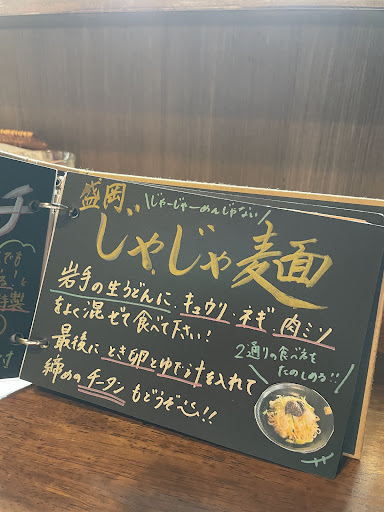 盛岡
じゃーじゃーめんじゃない
じゃじゃ麺
岩手の生うどんに、キュウリ、ネギ、肉ミソ
をよく混ぜて食べて下さい!
最後にとき卵とゆで汁を入れて
締めのチータンもどうぞ〜!!
2通りの食べ方を
たのしめる!!
チ
特製